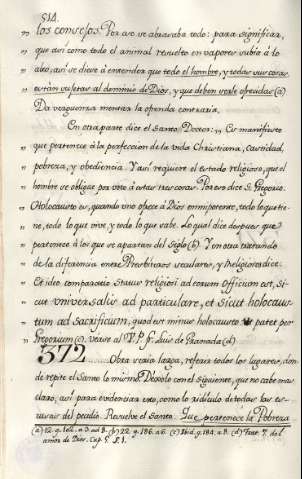 514.
los consejos. Por eso se abrasaba todo: para significar,
que asi como todo el animal resuelto en vapores subia à lo
alto, asi se diese à entender que todo el hombre, y todas sus cosas
estàn sujetas al dominio de Dios, y que deben serle ofrecidas (a)
Da verguenza mentar la ofrenda contraria.
En otra parte dice el Santo Doctor: Es manifiesto
que pertenece à la perfeccion de la vida Christiana, castidad,
pobreza, y obediencia. Y asi requiere el estado religioso, que el
hombre se obligue por voto à estas tres cosas. Por eso dice S. Gregorio.
Holocausto es, quando uno ofrece à Dios omnipotente, todo lo que tie-
ne, todo lo que vive, y todo lo que sabe. Lo qual dice despues que
pertenece à los que se apartan del Siglo (b) Y en otra tratando
de la diferencia entre Presbiteros seculares, y Religiosos dice.
Et ideo comparatio status religiosi ad eorum Officium est, si-
cut universalis ad particulare, et sicut holocaus-
tum ad sacrificium, quod est minus holocausto ut patet per
Gregorium (c). Vease al V. P. Fr. Luis de Granada (d)
372 Obra seria larga, referir todos los lugares, don
de repite el Santo lo mismo. Dexolo con el siguiente, que no cabe mas
claro, asi para evidenciar esto, como lo ridiculo de todas las es-
cusas del peculio. Resuelve el Santo: Que pertenece la Pobreza
(a) 12. q. 102. a. 3. ad 8. (b) 22. q. 186. a. 6. (c) Ibid. q. 184. a. 8. (d) del
amor de Dios. Cap. 5. §. 1.